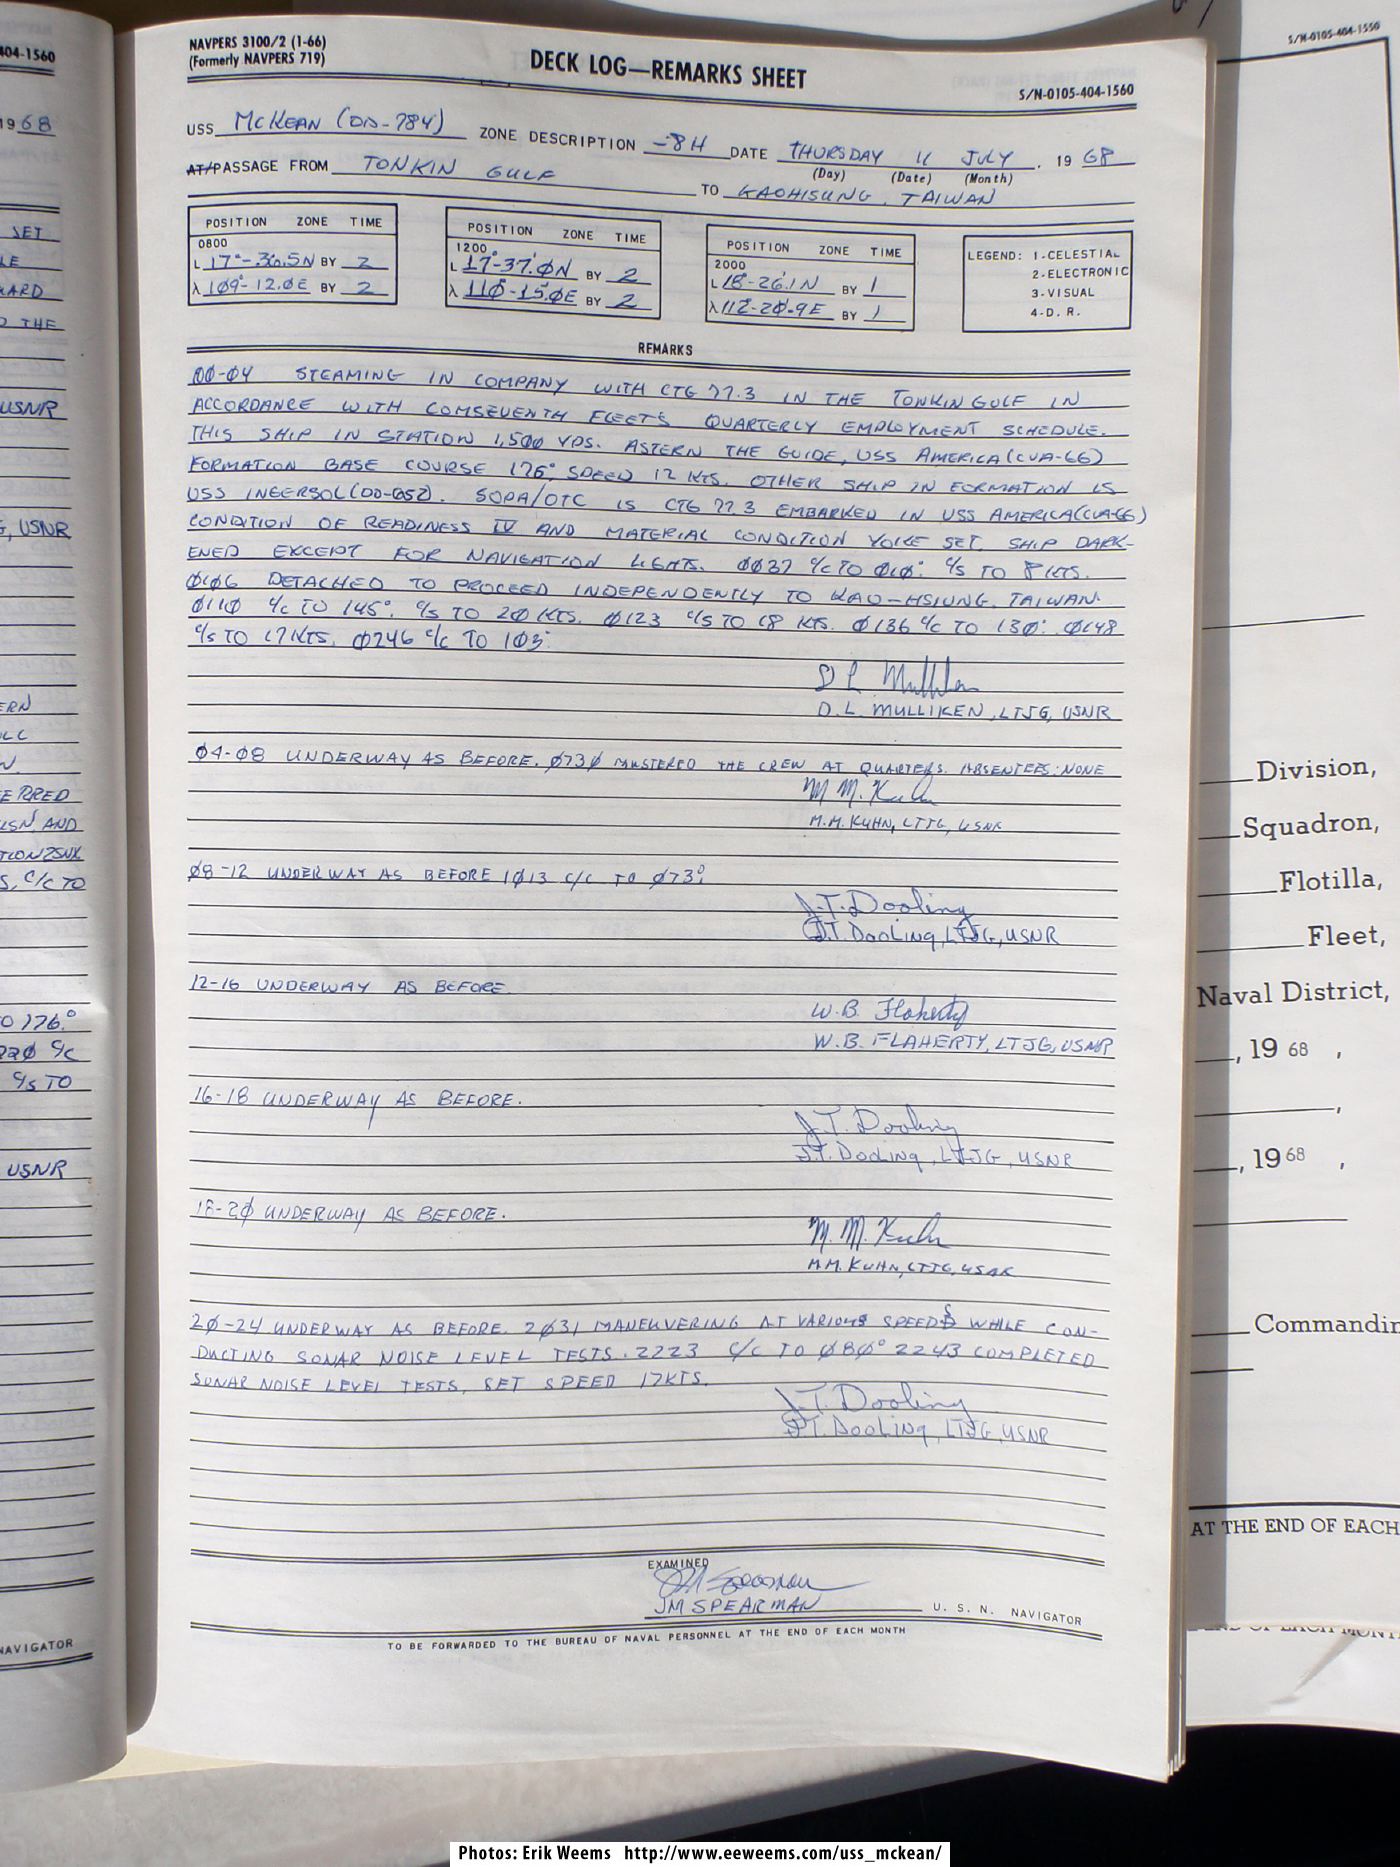 NAVPERS 3100/2 (1-66)
(Formerly NAVPERS 719)
DECK LOG—REMARKS SHEET
S/N-0105-404-1560
USS McKEAN (DD-784) ZONE DESCRIPTION -8H DATE THURSDAY 11 JULY, 1968
(Day) (Date) (Month)
AT/PASSAGE FROM TONKIN GULF TO KAOHISUNG, TAIWAN
POSITION ZONE TIME
0800
L 17°-36.5N BY 2
λ 109°-12.0E BY 2
POSITION ZONE TIME
1200
L 17°-37.0N BY 2
λ 110°-15.0E BY 2
POSITION ZONE TIME
2000
L 18°-26.1N BY 1
λ 112°-20.9E BY 1
LEGEND: 1-CELESTIAL
2-ELECTRONIC
3-VISUAL
4-D. R.
REMARKS
00-04 STEAMING IN COMPANY WITH CTG 77.3 IN THE TONKIN GULF IN
ACCORDANCE WITH COMSEVENTH FLEET'S QUARTERLY EMPLOYMENT SCHEDULE.
THIS SHIP IN STATION 1,500 YDS. ASTERN THE GUIDE, USS AMERICA (CVA-66)
FORMATION BASE COURSE 176°, SPEED 12 KTS. OTHER SHIP IN FORMATION IS
USS INGERSOL (DD-652). SOPA/OTC IS CTG 77.3 EMBARKED IN USS AMERICA (CVA-66)
CONDITION OF READINESS IV AND MATERIAL CONDITION YOKE SET. SHIP DARK-
ENED EXCEPT FOR NAVIGATION LIGHTS. 0037 C/C TO 010°. C/S TO 8 KTS.
0106 DETACHED TO PROCEED INDEPENDENTLY TO KAO-HSIUNG, TAIWAN.
0110 C/C TO 145°. C/S TO 20 KTS. 0123 C/S TO 18 KTS. 0136 C/C TO 130°. 0148
C/S TO 17 KTS. 0246 C/C TO 103°.
D L Mulliken
D.L. MULLIKEN, LTJG, USNR
04-08 UNDERWAY AS BEFORE. 0730 MUSTERED THE CREW AT QUARTERS. ABSENTEES: NONE
M M. Kuhn
M.M. KUHN, LTJG, USNR
08-12 UNDERWAY AS BEFORE 1013 C/C TO 073°.
J.T. Dooling
J.T. Dooling, LTJG, USNR
12-16 UNDERWAY AS BEFORE.
W.B. Flaherty
W.B. FLAHERTY, LTJG, USNR
16-18 UNDERWAY AS BEFORE.
J.T. Dooling
J.T. Dooling, LTJG, USNR
18-20 UNDERWAY AS BEFORE.
M. M. Kuhn
M.M. KUHN, LTJG, USNR
20-24 UNDERWAY AS BEFORE. 2031 MANEUVERING AT VARIOUS SPEEDS WHILE CON-
DUCTING SONAR NOISE LEVEL TESTS. 2223 C/C TO 080° 2243 COMPLETED
SONAR NOISE LEVEL TESTS, SET SPEED 17KTS.
J.T. Dooling
J.T. Dooling, LTJG, USNR
EXAMINED
JM Spearman
JM SPEARMAN U. S. N. NAVIGATOR
TO BE FORWARDED TO THE BUREAU OF NAVAL PERSONNEL AT THE END OF EACH MONTH
404-1560
1968
SET
ARD
THE
USNR
, USNR
ERRED
AND
S, C/C TO
TO 176.°
C/C
C/S TO
USNR
NAVIGATOR
S/N-0105-404-1550
Division,
Squadron,
Flotilla,
Fleet,
Naval District,
, 19 68 ,
, 19 68 ,
Commandin
AT THE END OF EACH
END OF EACH MONT
Photos: Erik Weems http://www.eeweems.com/uss_mckean/